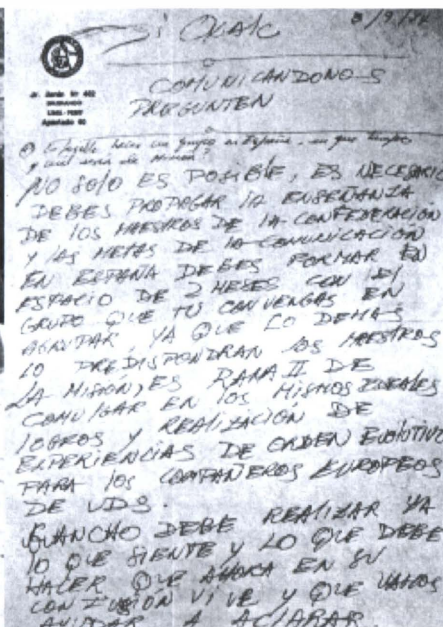 SI OXALC
8/9/
Jr. Junín Nº 402
BARRANCO
LIMA - PERU
Apartado 60
COMUNICANDONOS
PREGUNTEN
Es posible hacer un grupo en España, en que tiempo
y cual sería su misión?
NO SOLO ES POSIBLE, ES NECESARIO
DEBES PROPAGAR LA ENSEÑANZA
DE LOS MAESTROS DE LA CONFEDERACIÓN
Y LAS METAS DE LA COMUNICACION
EN ESPAÑA DEBES FORMAR EN
ESPACIO DE 2 MESES CON EL
GRUPO QUE TU CONVENGAS EN
AGRUPAR, YA QUE LO DEMAS
LO PREDISPONDRAN LOS MAESTROS
LA MISION, ES RAMA II DE
COMULGAR EN LOS MISMOS IDEALES
LOGROS Y REALIZACIÓN DE
EXPERIENCIAS DE ORDEN EVOLUTIVO
PARA LOS COMPAÑEROS EUROPEOS
DE UDS.
DEBE REALIZAR YA
LO QUE SIENTE Y LO QUE DEBE
HACER QUE AHORA EN SU
CONFUSIÓN VIVE Y QUE VAMOS
AYUDAR A ACLARAR